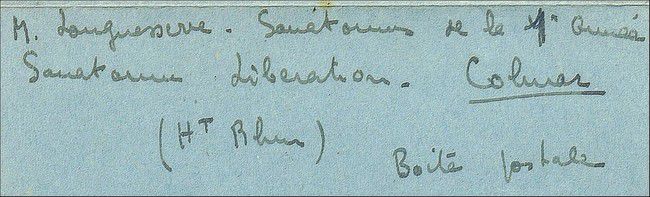 M. Longuesserre. Sanatorium de la 1e Armée
Sanatorium Libération. Colmar
(Ht Rhin)
Boite postale